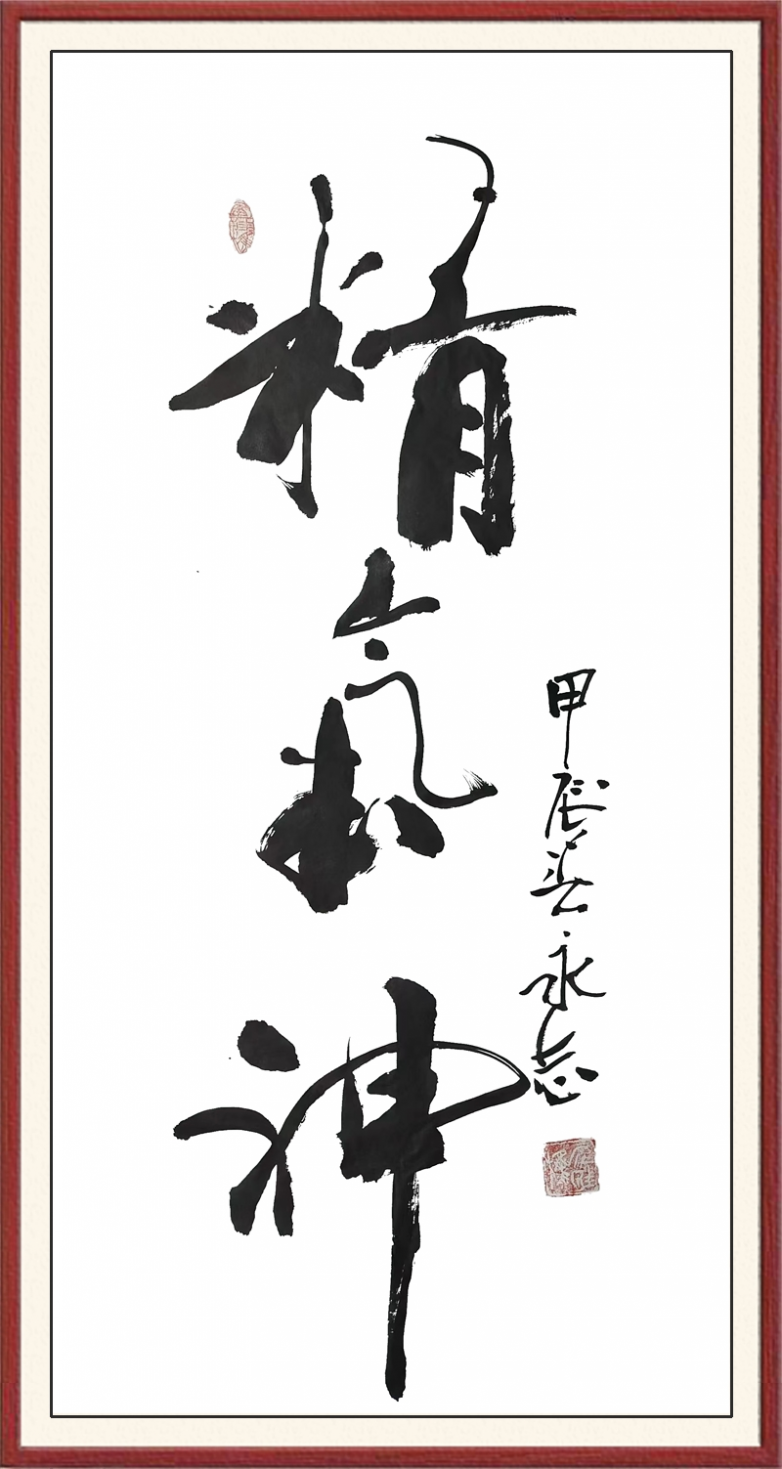 精氣神
甲辰春永志